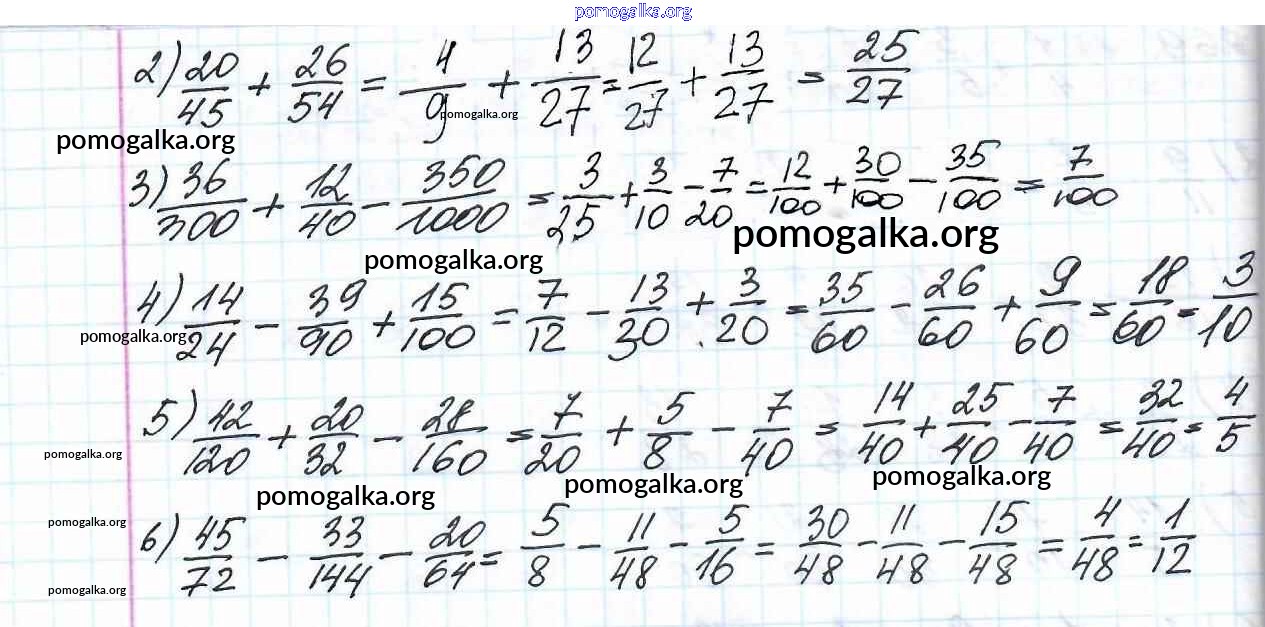 pomogalka.org
2) 20/45 + 26/54 = 4/9 + 13/27 = 12/27 + 13/27 = 25/27
pomogalka.org
pomogalka.org
3) 36/300 + 12/40 - 350/1000 = 3/25 + 3/10 - 7/20 = 12/100 + 30/100 - 35/100 = 7/100
pomogalka.org
pomogalka.org
4) 14/24 - 39/90 + 15/100 = 7/12 - 13/30 + 3/20 = 35/60 - 26/60 + 9/60 = 18/60 = 3/10
pomogalka.org
5) 42/120 + 20/32 - 28/160 = 7/20 + 5/8 - 7/40 = 14/40 + 25/40 - 7/40 = 32/40 = 4/5
pomogalka.org
pomogalka.org pomogalka.org pomogalka.org
pomogalka.org
6) 45/72 - 33/144 - 20/64 = 5/8 - 11/48 - 5/16 = 30/48 - 11/48 - 15/48 = 4/48 = 1/12
pomogalka.org